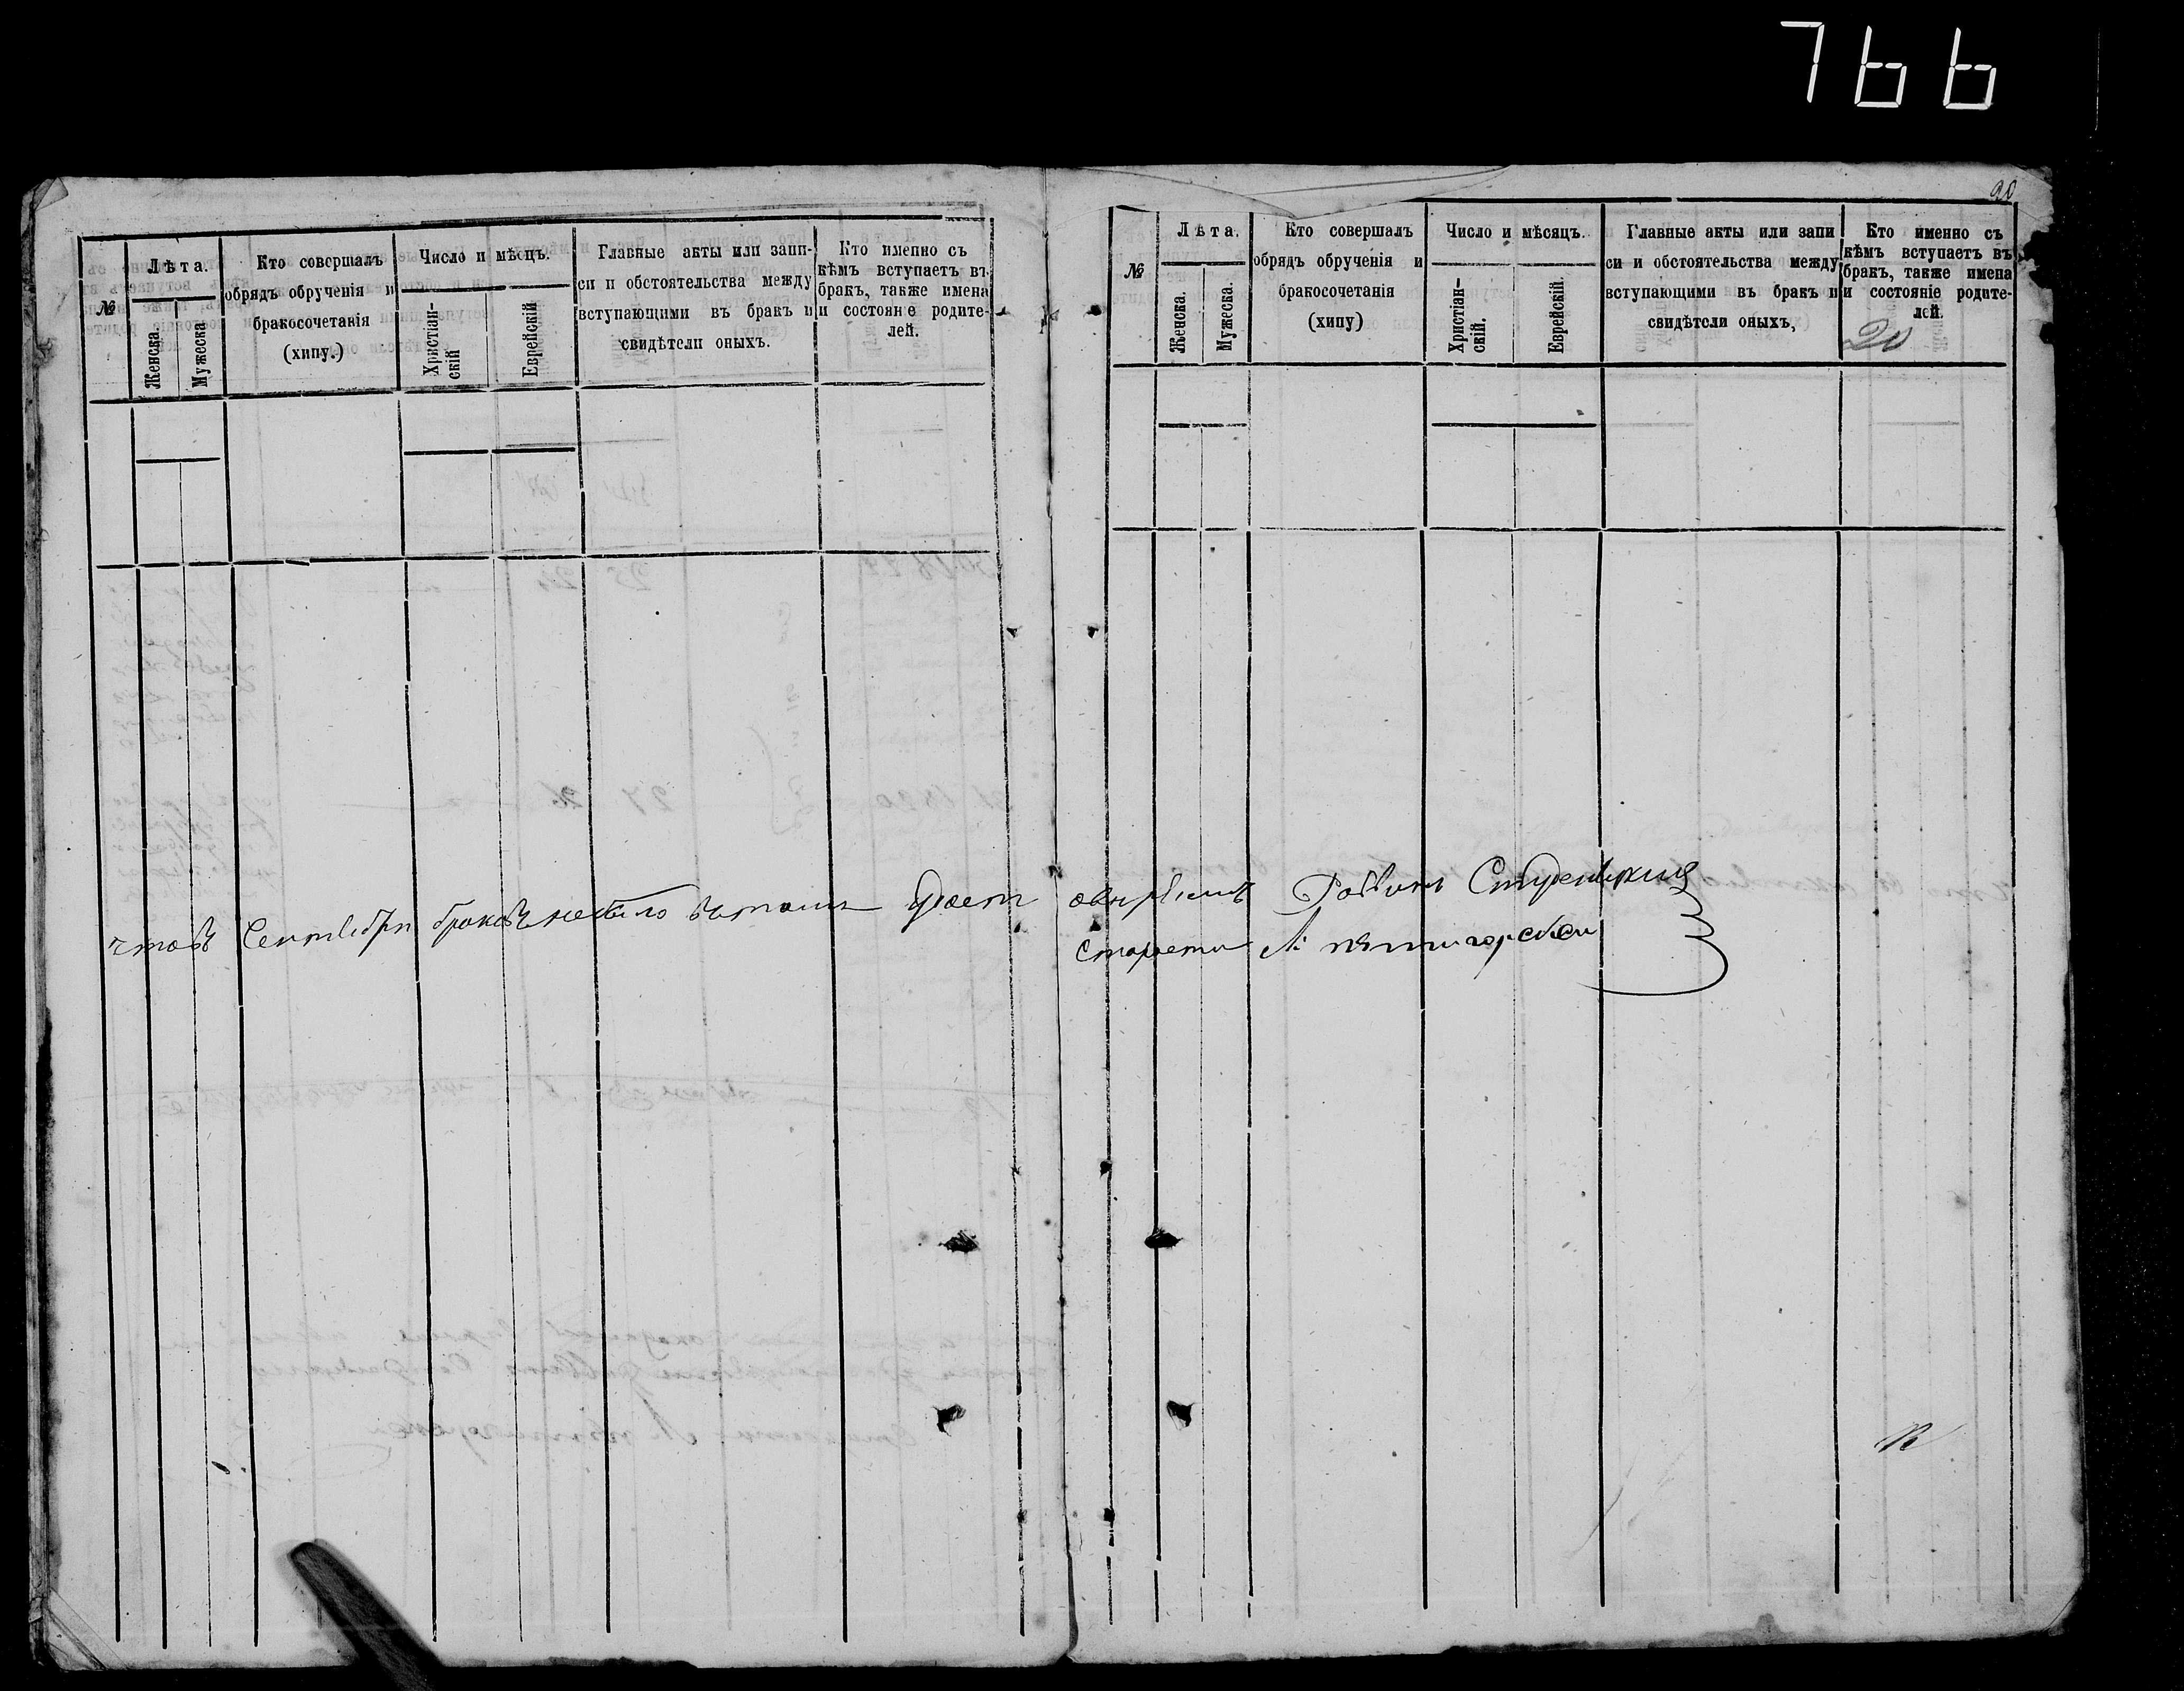 766
20
№
Лѣта.
Женска.
Мужеска
Кто совершалъ
обрядъ обрученія и
бракосочетанія
(хипу.)
Число и мѣсцъ.
Христіан-
скій
Еврейскій
Главные акты или запи-
си и обстоятельства между
вступающими въ бракъ и
свидѣтели оныхъ.
Кто именно съ
кѣмъ вступаетъ въ
бракъ, также имена
и состояніе родите-
лей.
№
Лѣта.
Женска.
Мужеска.
Кто совершалъ
обрядъ обрученія и
бракосочетанія
(хипу)
Число и мѣсяцъ.
Христіан-
скій.
Еврейскій.
Главные акты или запи
си и обстоятельства между
вступающими въ бракъ и
свидѣтели оныхъ,
Кто именно съ
кѣмъ вступаетъ въ
бракъ, также имена
и состояніе родите-
лей.
20
что въ Сентебри браковъ небыло втомъ
Раввинъ
Старости